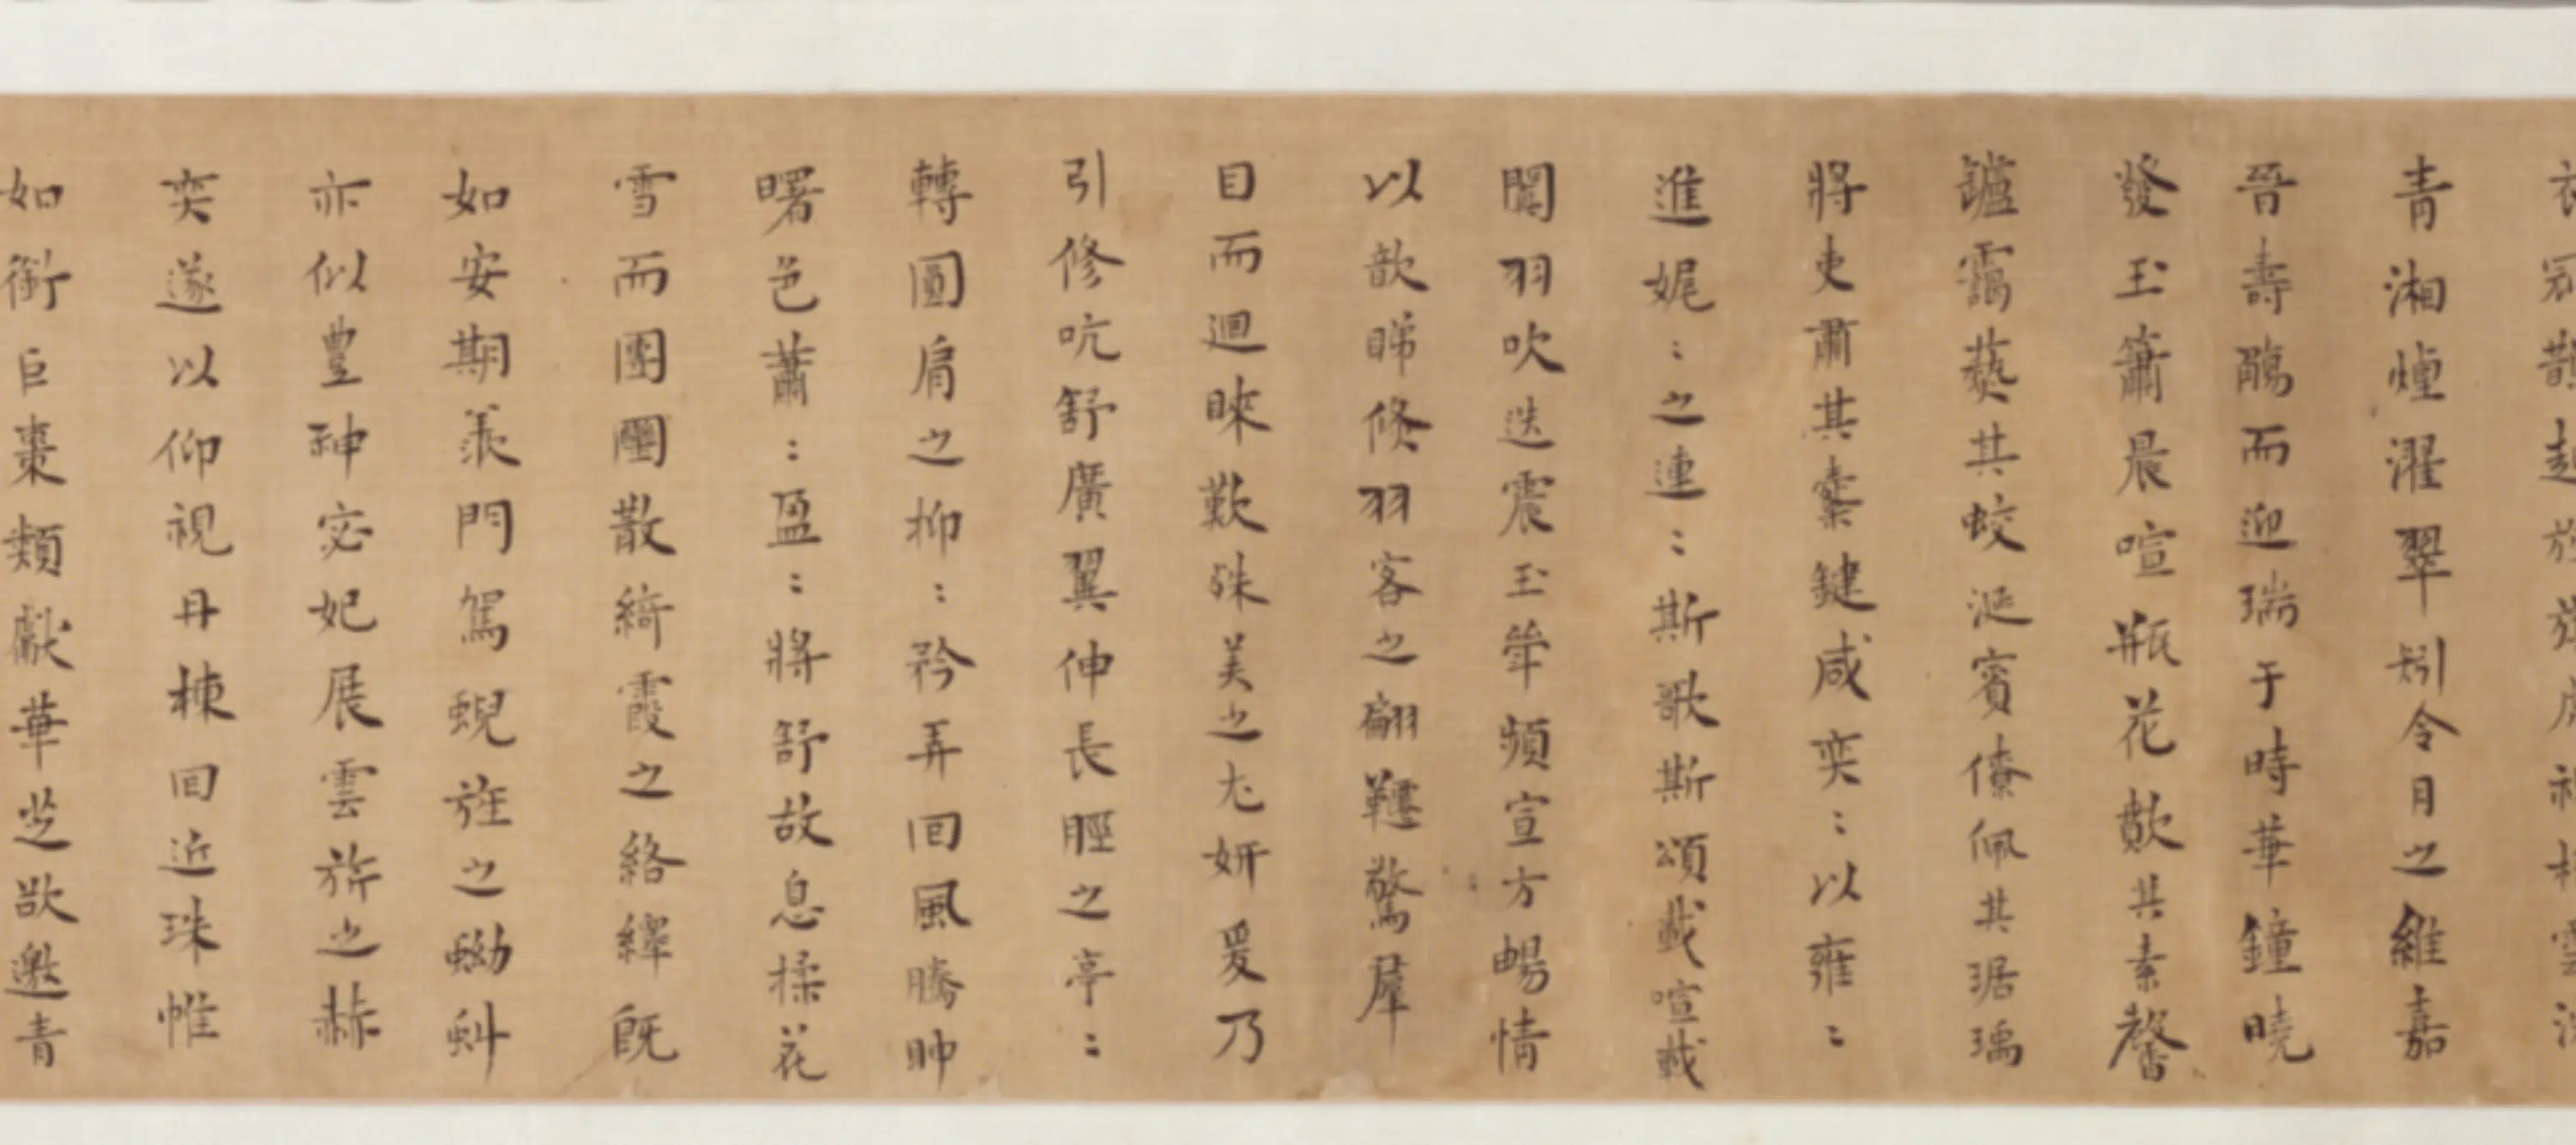 青湘煙濯翠矧令月之維嘉
晉壽觴而迎瑞于時華鐘曉
發玉簫晨喧瓶花歕其素馨
鑪靄爇其蛟涎賓僚佩其琚瑀
將吏肅其櫜鍵咸奕：以雍：
進娓：之連：斯歌斯頌載喧載
闐羽吹迭震玉笙頻宣方暢情
以歆睇倏羽客之翩韆驚犀
目而迴睞歎殊美之尤妍爰乃
引修吭舒廣翼伸長脛之亭：
轉圓肩之抑：矜弄回風勝帥
曙色蕭：盈：將舒故息揉花
雪而團圞散綺霞之絡繹旣
如安期羨門駕蜺旌之蚴蚪
亦似豊神宓妃展雲旂之赫
奕遂以仰視丹棟回近珠帷
如銜巨棗類獻華芝欲邀青